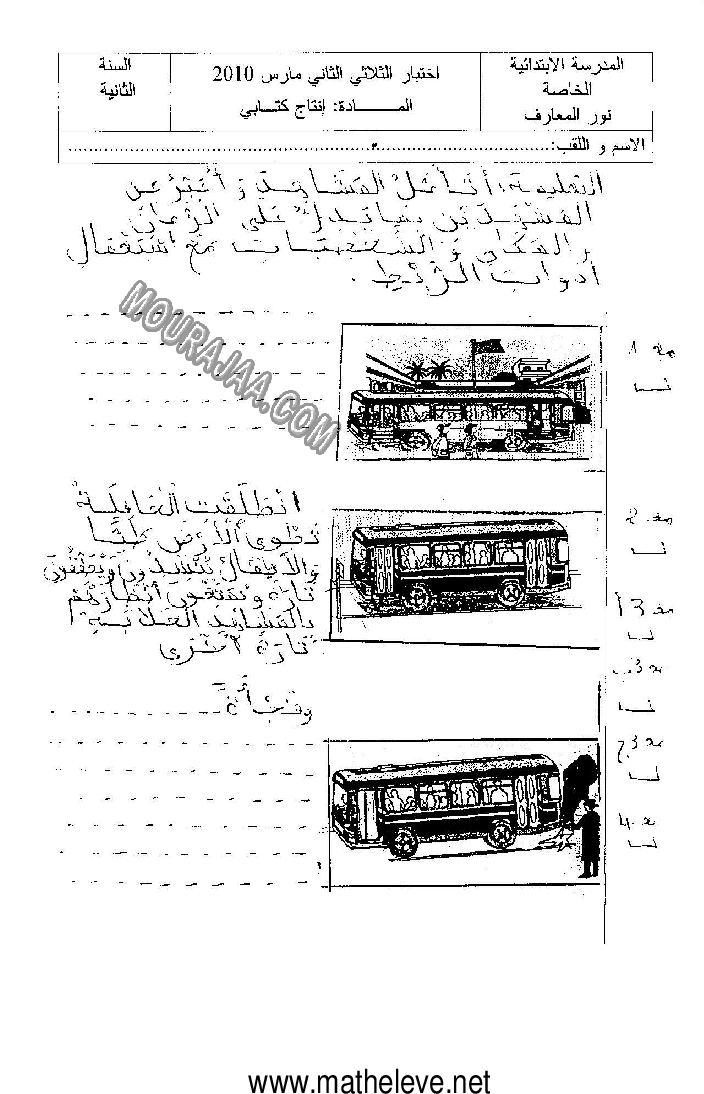 المدرسة الابتدائية
الخاصة
نور المعارف
اختبار الثلاثي الثاني مارس 2010
المـــــادة: إنتاج كتـــابي
السنة
الثانية
الاسم و اللقب:
التعليمة: أتأمّل المشاهد و أعبّر عن
المشهدين بما يدلّ على الزّمان
و المكان و الشّخصيات مع استعمال
أدوات الرّبط.
MOURAJAA.COM
مع 1
انطلقت الحافلة
تطوي الأرض طيّا
والأطفال ينشدون ويصفّقون
تارة ويمتّعون أنظارهم
بالمشاهد الخلابة
تارة أخرى
مع 2
مع 3 أ
مع 3 ب
وفجأة
مع 3 ج
مع 4
www.matheleve.net